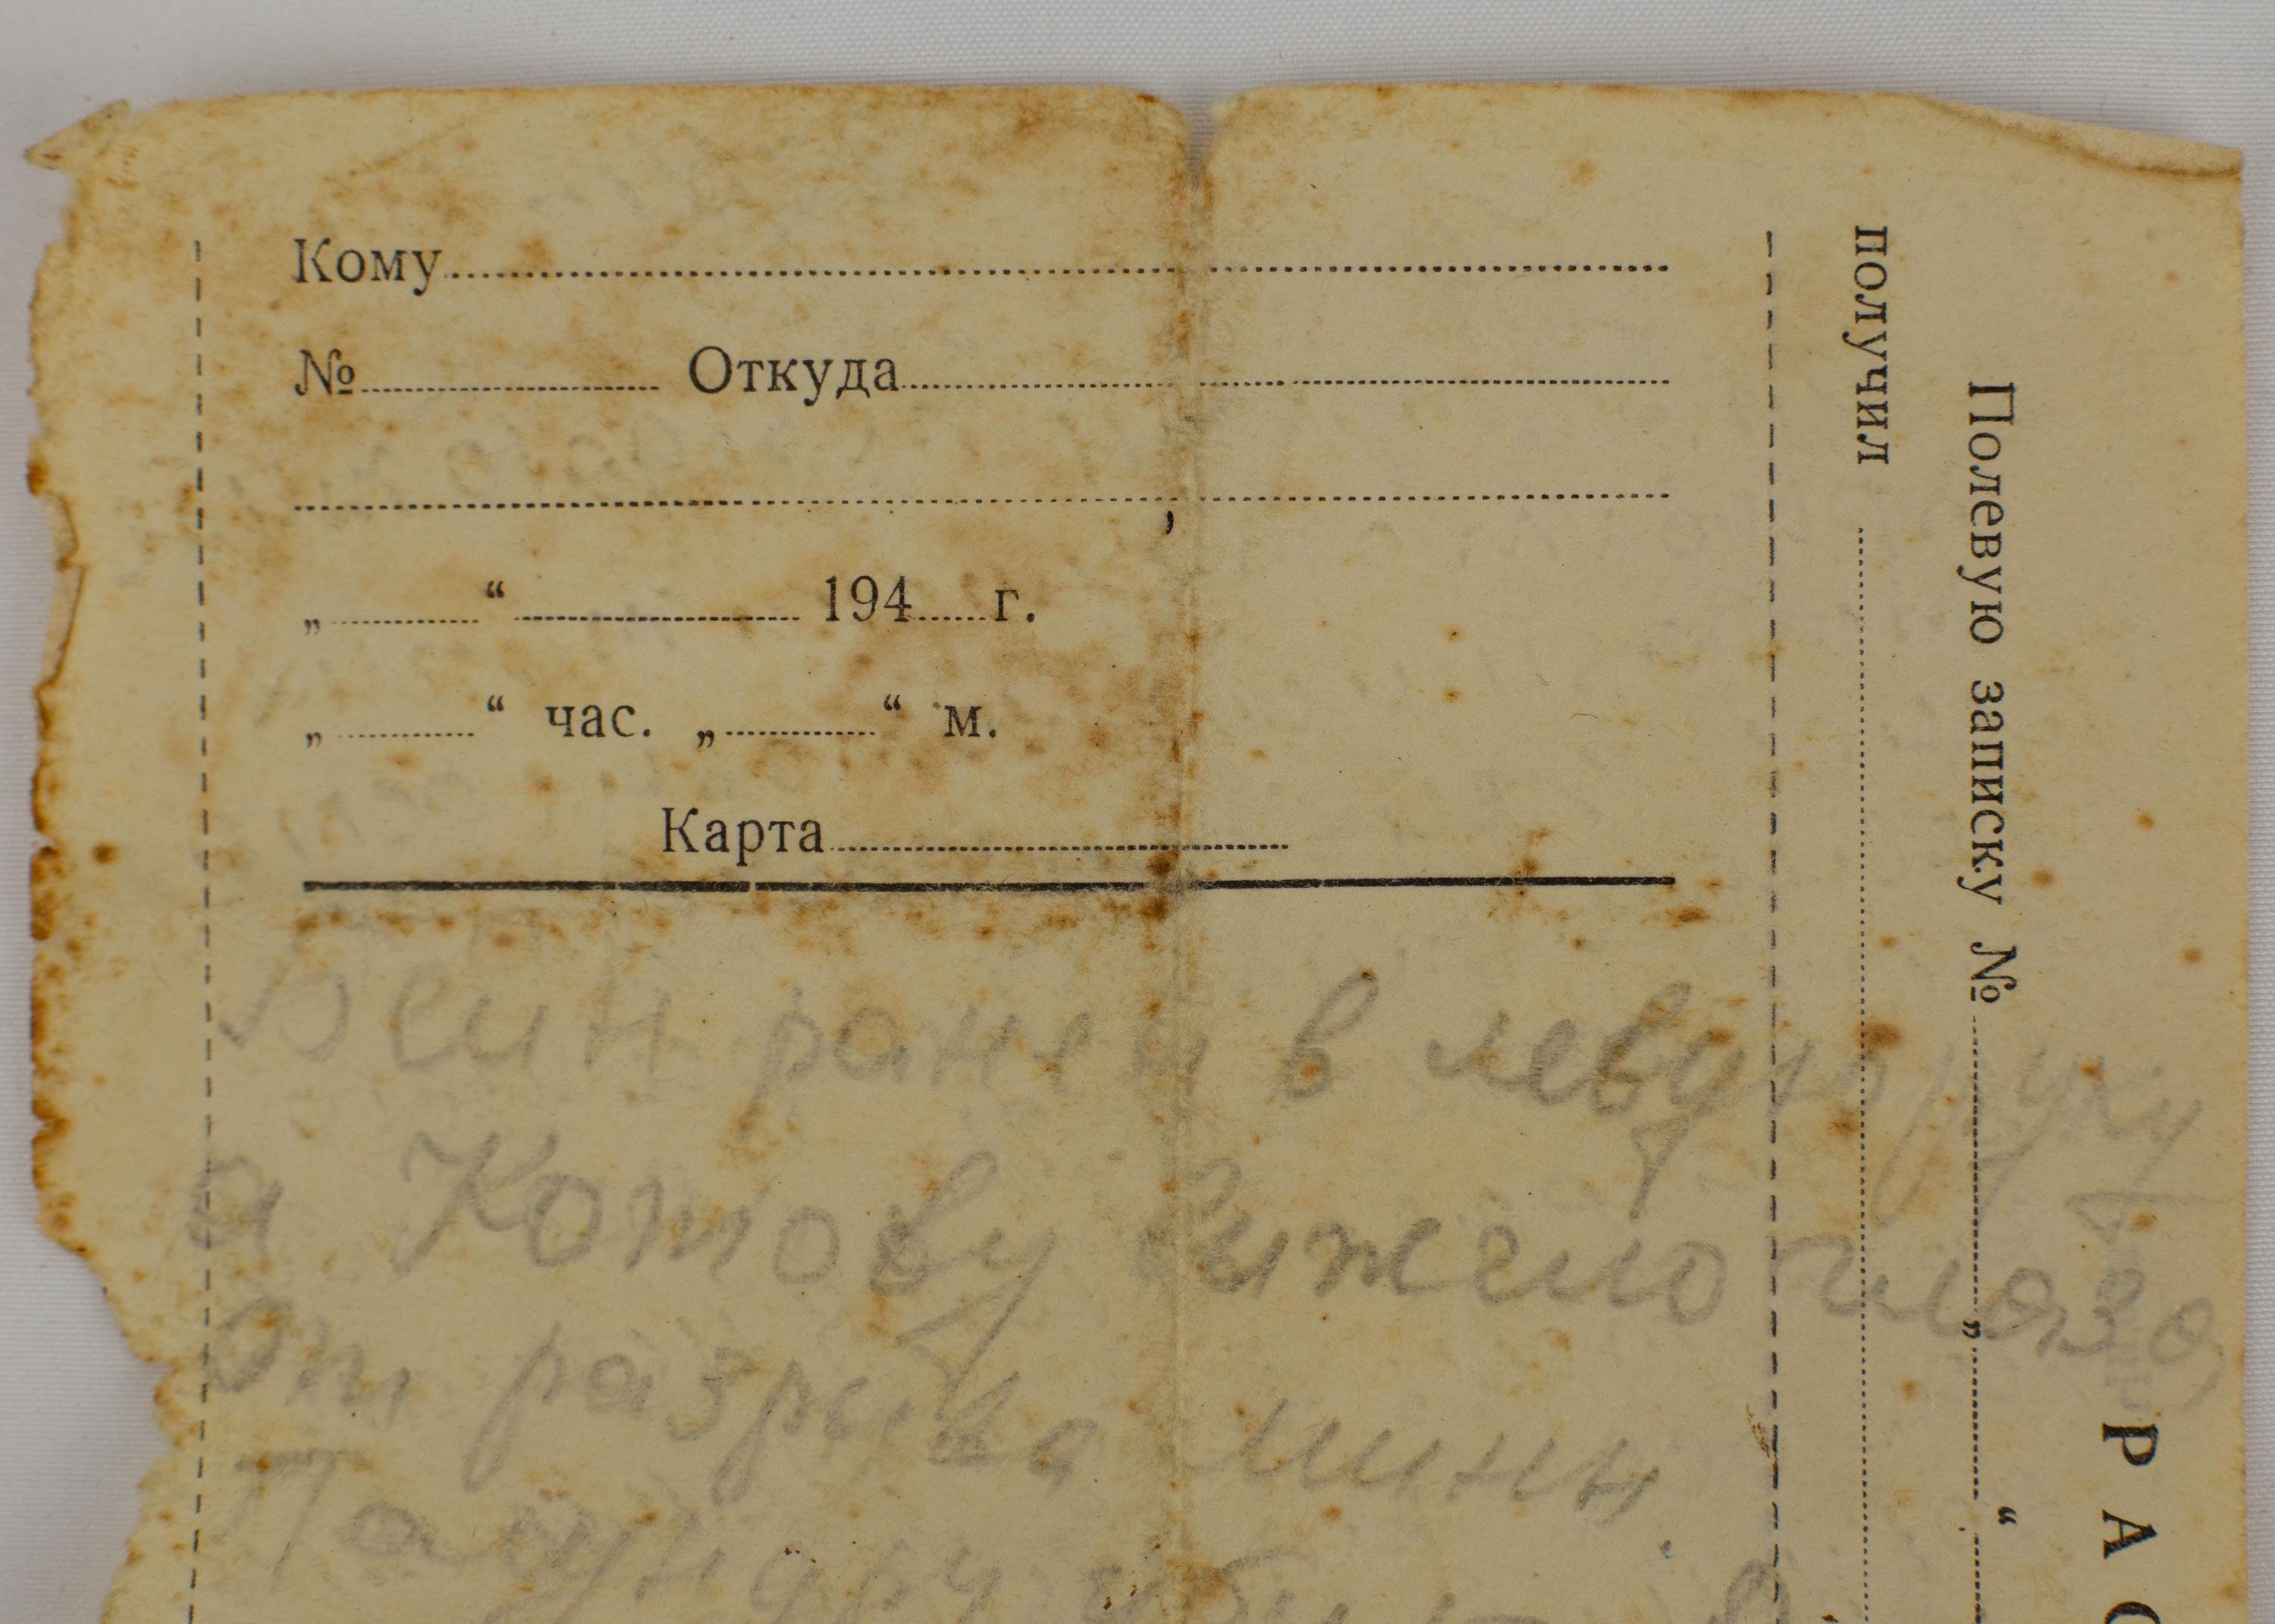 Кому
№ Откуда
„ “ 194 г.
„ “ час. „ “ м.
Карта
ранен в левую руку
а Котову выжело глаза
от разрыва мины
получил
Полевую записку № „ “
РАС